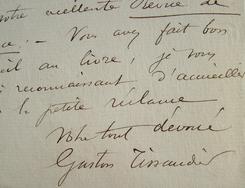 votre excellente Revue de
ce. – Vous avez fait bon
eil au livre, je vous
reconnaissant d'accueillir
la petite réclame
Votre tout dévoué
Gaston Tissandier